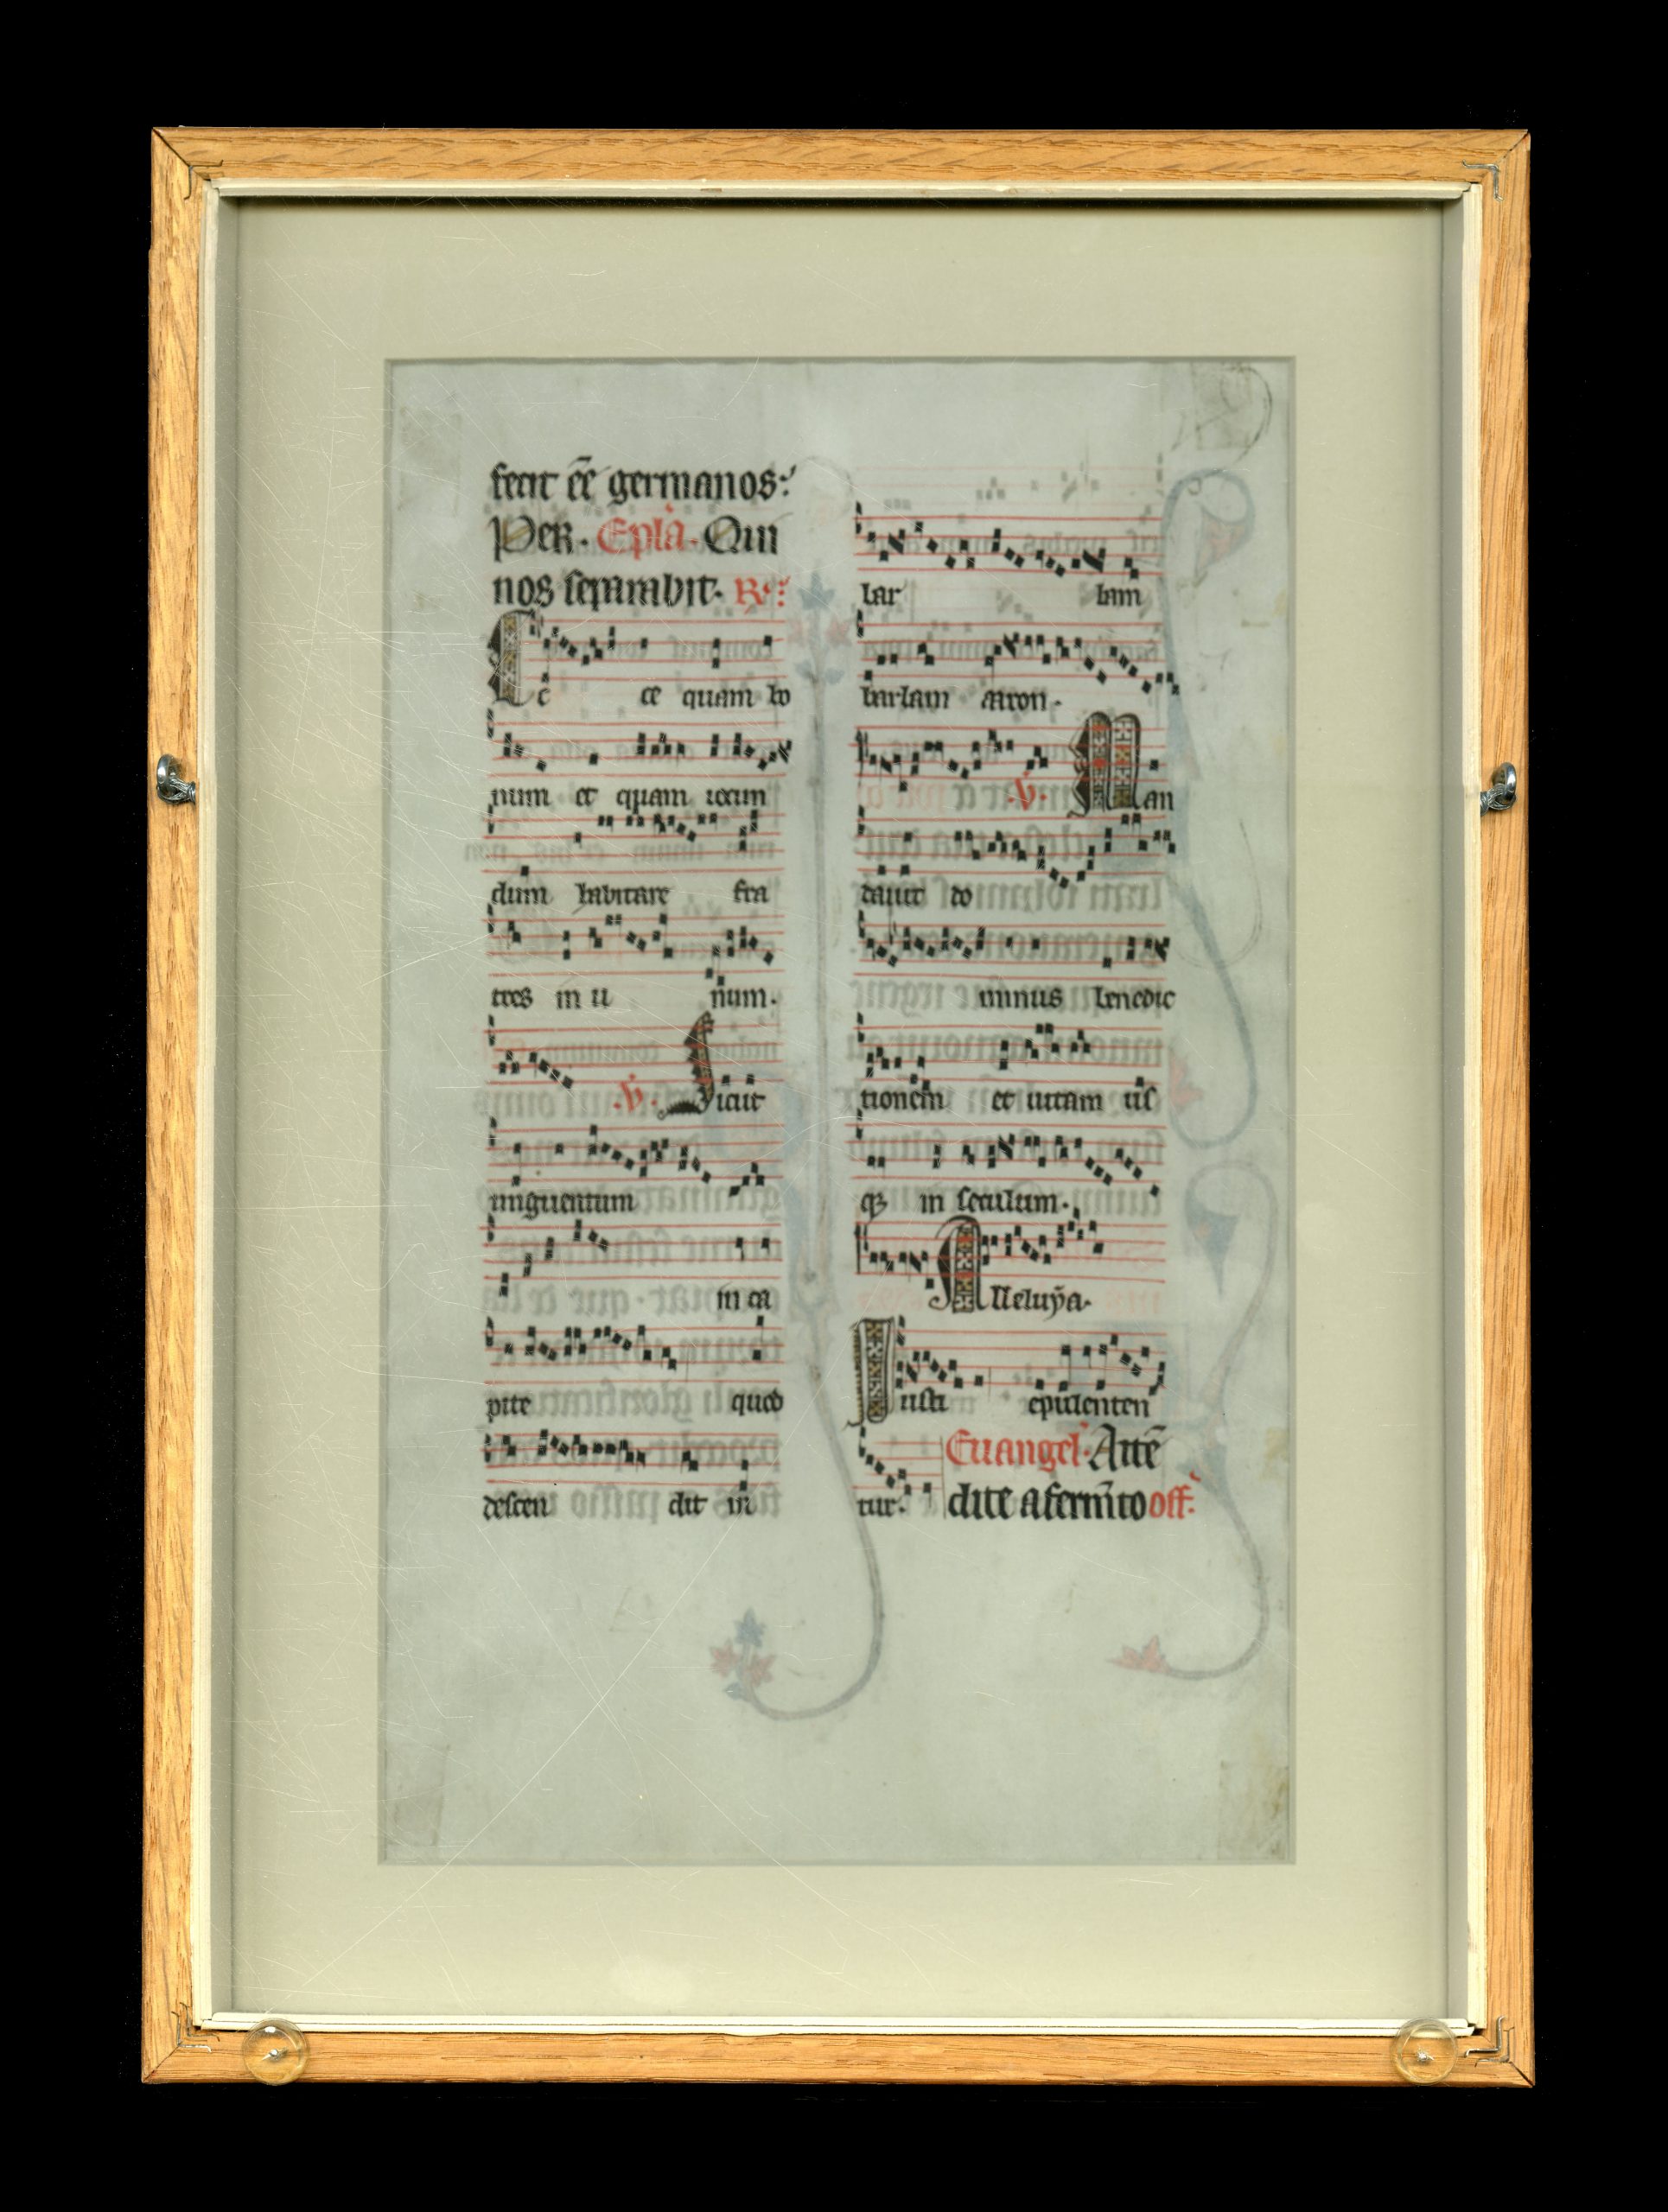 fecit ēē germanos:
Per. Epl̄a. Qui
nos sepārabit. R.
Ec ce quam bo
num et quam iocun
dum habitare fra
tres in u num.
V. Sicut
unguentum
in ca
pite quod
descen dit in
bar bam
barbam aaron.
V. Man
dauit do
minus benedic
tionem et uitam us
qꝫ in seculum.
Alleluya.
Iusti epulenten
tur. Euangel. Attē
dite a ferm̄to off.